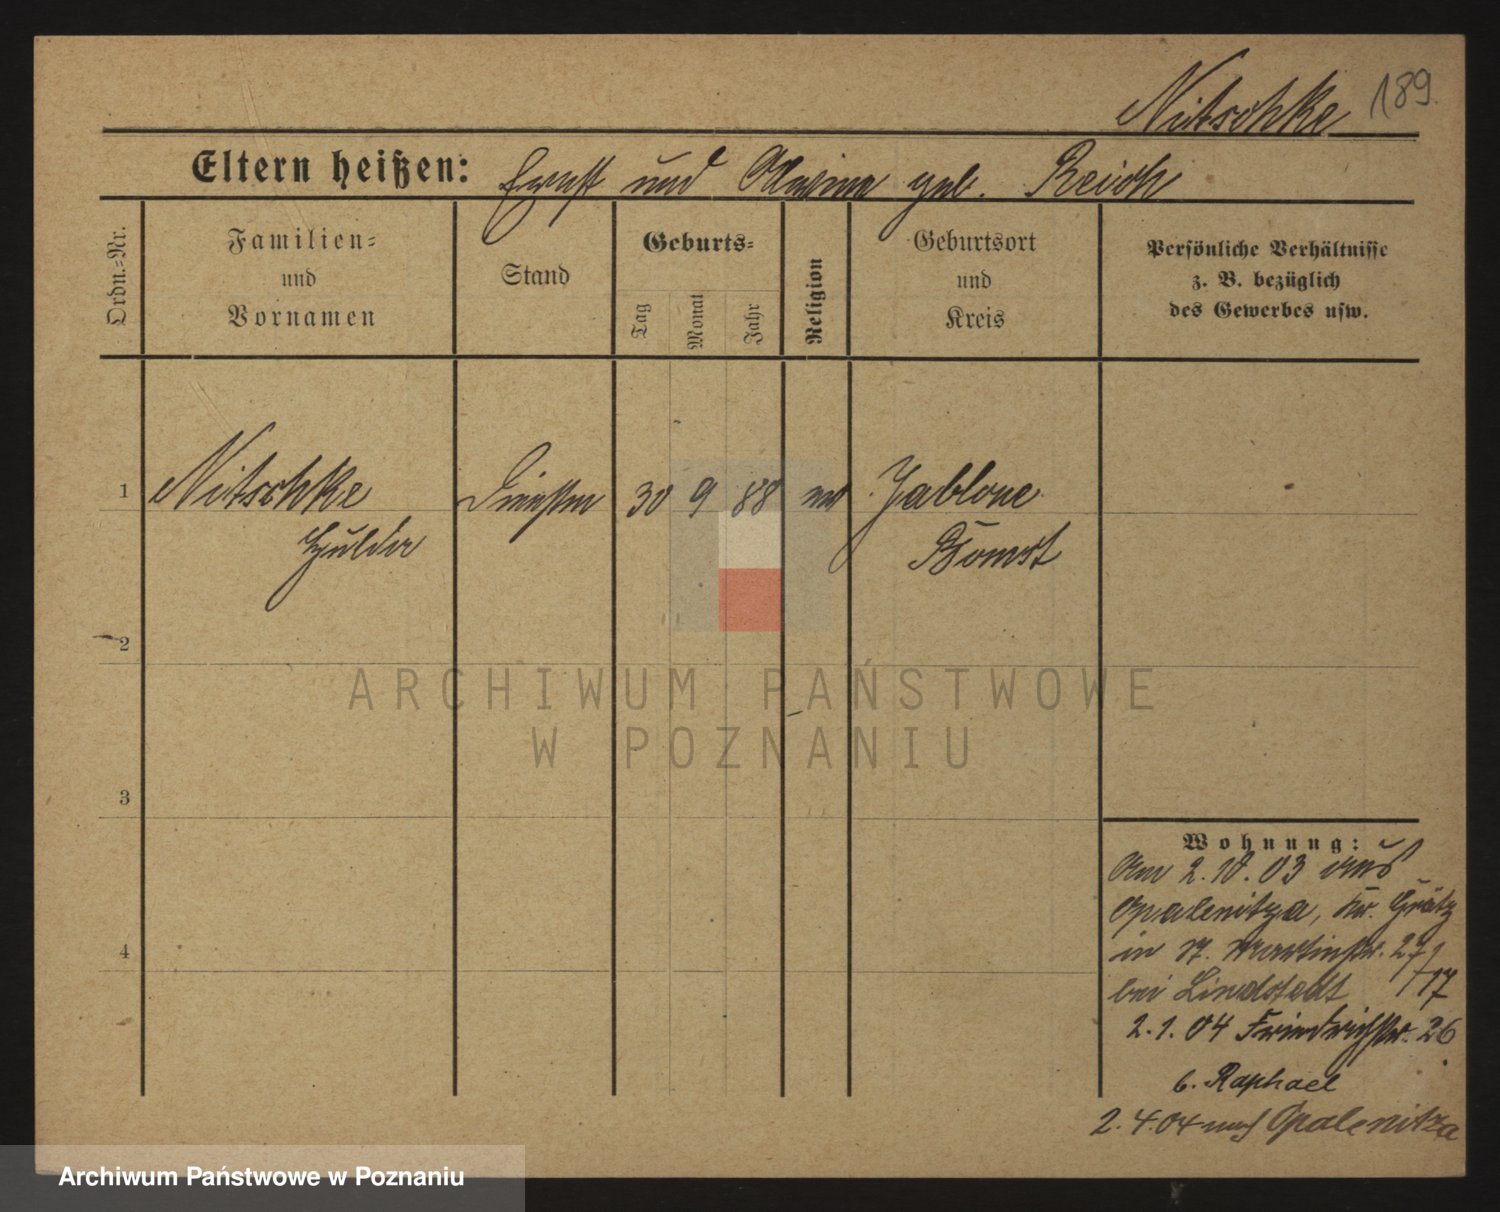 Nitschke 189.
Eltern heißen: Ernst und Alwine geb. Reich
Ordn.=Nr.
Familien=
und
Vornamen
Stand
Geburts=
Tag
Monat
Jahr
Religion
Geburtsort
und
Kreis
Persönliche Verhältnisse
z. B. bezüglich
des Gewerbes usw.
1 Nitschke 30 9 88 ev Jablone
Hulda Bomst
2
3
4
Wohnung:
Am 2.10.03 aus
Opalenitza, Kr. Grätz
in St. Martinstr. 27/17
bei Lindstedt
2.1.04 Friedrichstr. 26
b. Raphael
2.4.04 nach Opalenitza
ARCHIWUM PAŃSTWOWE
W POZNANIU
Archiwum Państwowe w Poznaniu